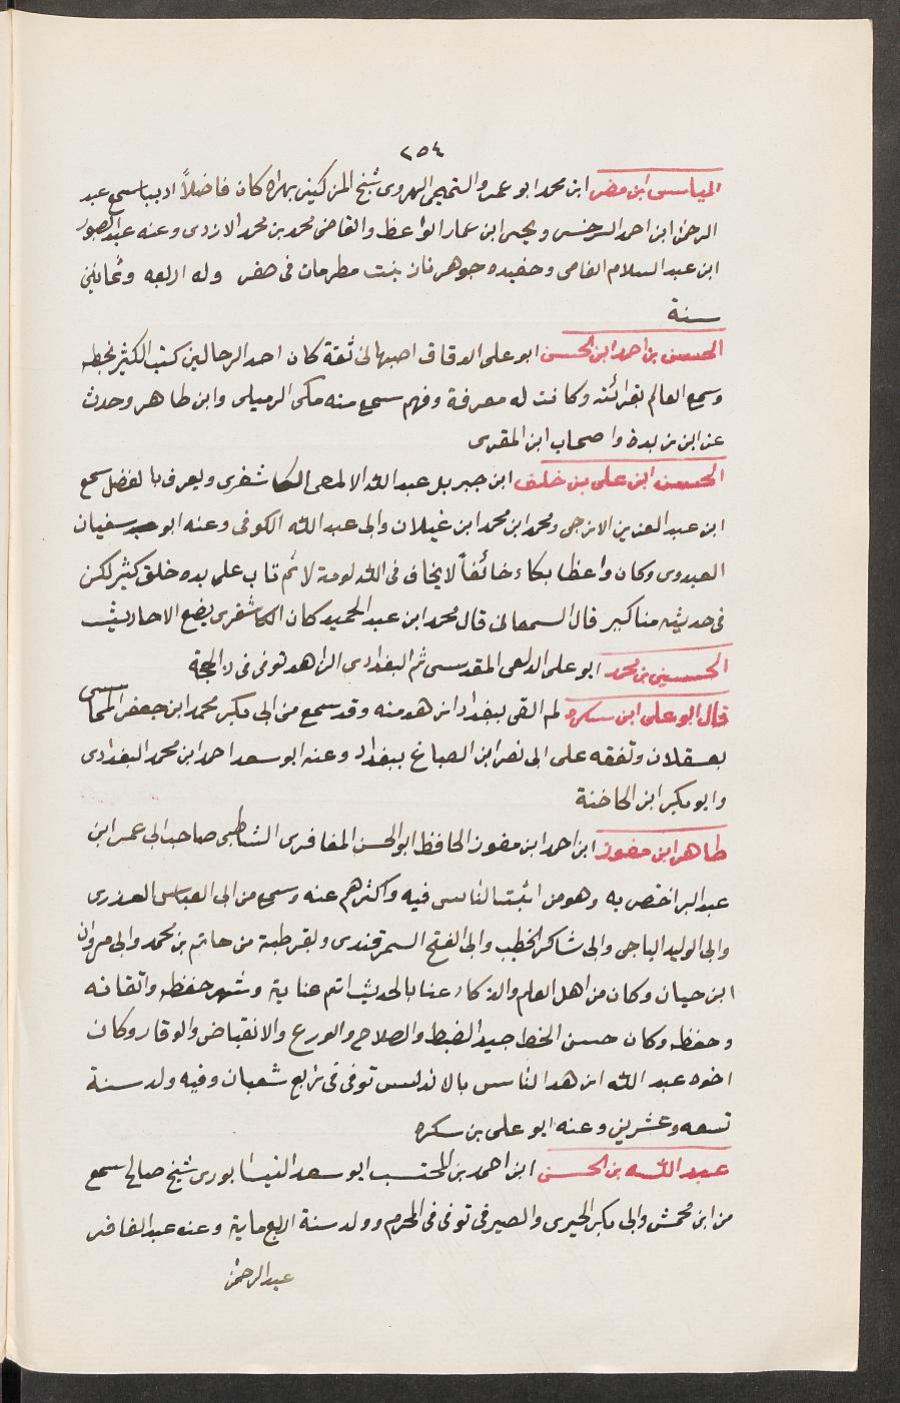 ٢٥٤
الياس ابن مضر ابن محمد ابو عمرو التميمى الهروى شيخ المزكين بهراة كان فاضلاً اديبا سمع عبد
الرحمن ابن احمد السرخسى ويحيى ابن عمار الواعظ والقاضى محمد بن محمد الازدى وعنه عبد الصبور
ابن عبد السلام الفامى وحفيده جوهرناز بنت مطر مات فى صفر وله اربعه وثمانين
سنة
الحسن بن احمد ابن الحسن ابو على الدقاق اصبهانى ثقة كان احد الرحالين كتب الكثير بخطه
وسمع العالم بقرائته وكانت له معرفة وفهم سمع منه مكى الرميلى وابن طاهر وحدث
عن ابن ريدة واصحاب ابن المقرى
الحسن ابن على بن خلف ابن جبريل عبد الله الالمعى الكاشغرى ويعرف بالفضل سمع
ابن عبد العزيز الازجى ومحمد ابن محمد ابن غيلان وابى عبد الله الكوفى وعنه ابو سفيان
العبدوى وكان واعظا بكاء خائفاً لا يخاف فى الله لومة لائم تاب على يده خلق كثير لكن
فى حديثه مناكير قال السمعانى قال محمد ابن عبد الحميد كان الكاشغرى يضع الاحاديث
الحسين بن محمد ابو على الدلفى المقدسى ثم البغدادى الزاهد توفى فى ذا الحجة
قال ابو على ابن سكره لم القى ببغداد ازهد منه وقد سمع من ابى بكر محمد ابن جعفر الميماسى
بعسقلان وتفقه على ابى نصر ابن الصباغ ببغداد وعنه ابو سعد احمد ابن محمد البغدادى
وابو بكر ابن الخاضنة
طاهر ابن مفوز ابن احمد ابن مفوز الحافظ ابو الحسن المغافرى الشاطبى صاحب ابى عمر ابن
عبد البر اختص به وهو من اثبت الناس فيه واكثرهم عنه وسمع من ابى العباس العذرى
وابى الوليد الباجى وابى شاكر الخطيب وابى الفتح السمرقندى وبقرطبة من حاتم بن محمد وابى مروان
ابن حيان وكان من اهل العلم والذكاء عنا بالحديث اتم عناية وشهر حفظه واتقانه
وحفظه وكان حسن الخط جيد الضبط والصلاح والورع والانقباض والوقار وكان
اخوه عبد الله ازهد الناس بالاندلس توفى فى رابع شعبان وفيه ولد سنة
تسعه وعشرين وعنه ابو على بن سكره
عبد الله بن الحسن ابن احمد بن المحتسب ابو سعد النيسابورى شيخ صالح سمع
من ابن محمش وابى بكر الحيرى والصيرفى توفى فى المحرم وولد سنة اربع ماية وعنه عبد الغافر
عبد الرحمن